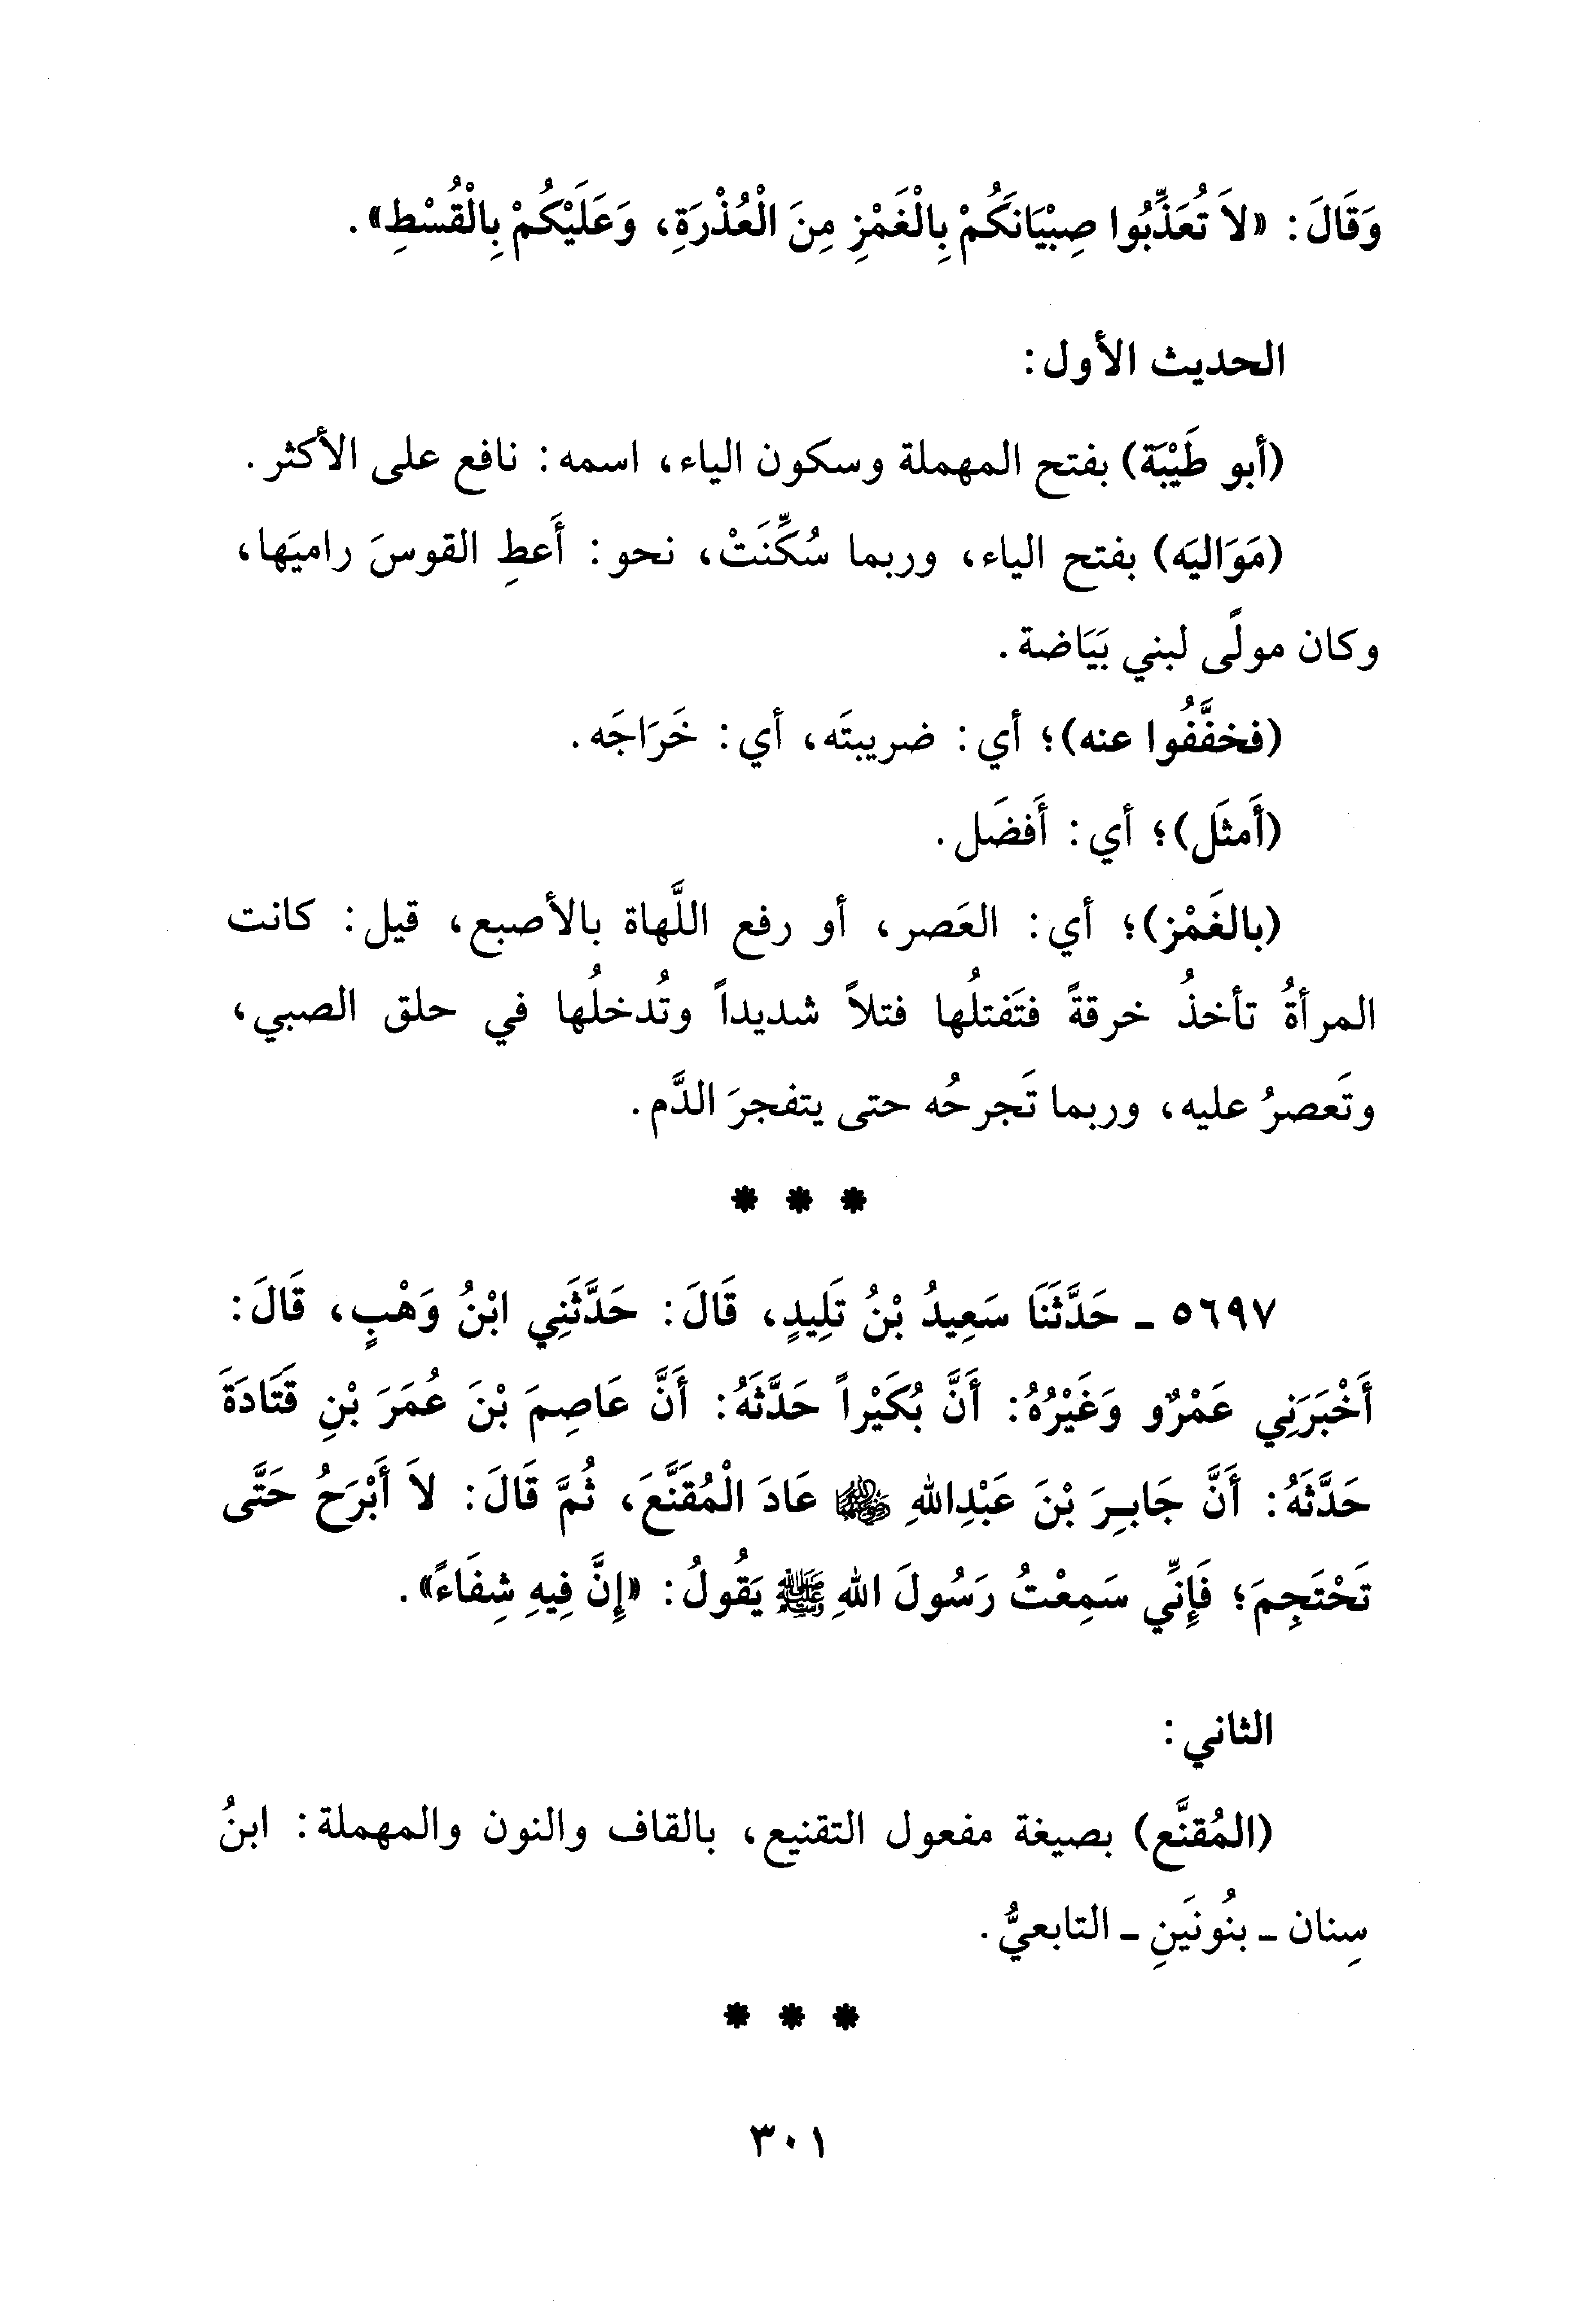 وَقَالَ: «لاَ تُعَذِّبُوا صِبْيَانَكُمْ بِالْغَمْزِ مِنَ الْعُذْرَةِ، وَعَلَيْكُمْ بِالْقُسْطِ».
الحديث الأول:
(أبو طَيْبَة) بفتح المهملة وسكون الياء، اسمه: نافع على الأكثر.
(مَوَاليَه) بفتح الياء، وربما سُكِّنَتْ، نحو: أَعطِ القوسَ راميَها،
وكان مولًى لبني بَيَاضة.
(فخفَّفُوا عنه)؛ أي: ضريبتَه، أي: خَرَاجَه.
(أَمثَل)؛ أي: أَفضَل.
(بالغَمْز)؛ أي: العَصر، أو رفع اللَّهاة بالأصبع، قيل: كانت
المرأةُ تأخذُ خرقةً فتَفتلُها فتلاً شديداً وتُدخلُها في حلق الصبي،
وتَعصرُ عليه، وربما تَجرحُه حتى يتفجرَ الدَّم.
* * *
٥٦٩٧ ـ حَدَّثَنَا سَعِيدُ بْنُ تَلِيدٍ، قَالَ: حَدَّثَنِي ابْنُ وَهْبٍ، قَالَ:
أَخْبَرَنِي عَمْرٌو وَغَيْرُهُ: أَنَّ بُكَيْراً حَدَّثَهُ: أَنَّ عَاصِمَ بْنَ عُمَرَ بْنِ قَتَادَةَ
حَدَّثَهُ: أَنَّ جَابِرَ بْنَ عَبْدِاللهِ ﵁ عَادَ الْمُقَنَّعَ، ثُمَّ قَالَ: لاَ أَبْرَحُ حَتَّى
تَحْتَجِمَ؛ فَإِنِّي سَمِعْتُ رَسُولَ اللهِ ﷺ يَقُولُ: «إِنَّ فِيهِ شِفَاءً».
الثاني:
(المُقنَّع) بصيغة مفعول التقنيع، بالقاف والنون والمهملة: ابنُ
سِنان ـ بنُونَينِ ـ التابعيُّ.
* * *
٣٠١